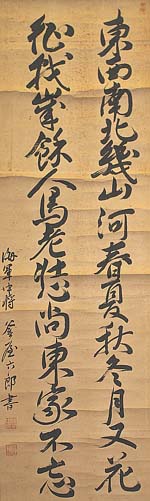 東西南北幾山河春夏秋冬月又花
征戦歳餘人馬老壯心尚東家不忘
海軍中将 釜屋六郎書